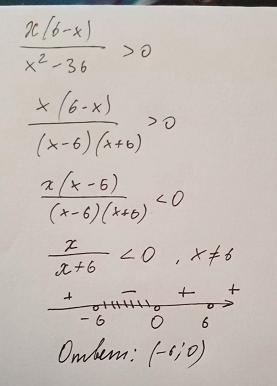 x(6-x) / x² - 36 > 0
x(6-x) / (x-6)(x+6) > 0
x(x-6) / (x-6)(x+6) < 0
x / x+6 < 0 , x ≠ 6
+ - + +
-6 0 6
Ответ: (-6; 0)